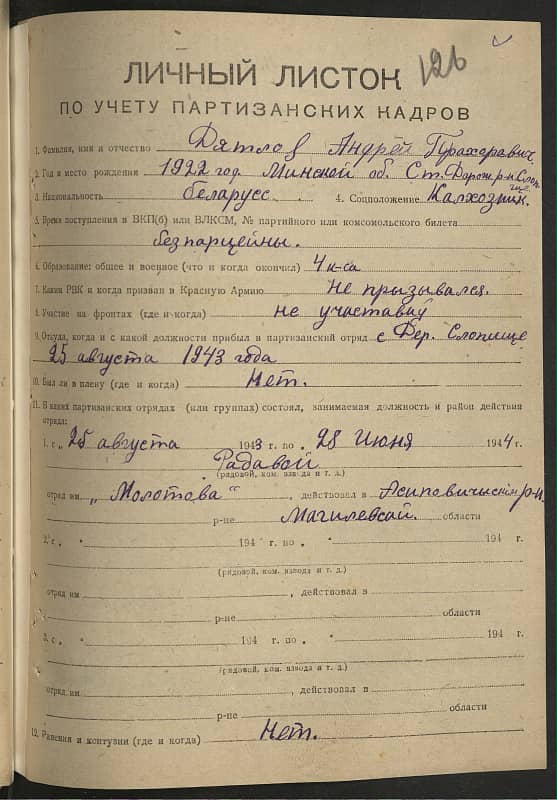 126
ЛИЧНЫЙ ЛИСТОК
ПО УЧЕТУ ПАРТИЗАНСКИХ КАДРОВ
1. Фамилия, имя и отчество Дятлов Андрей
2. Год и место рождения 1922 год Минской об. Ст. Дорож р-н Слоп
ище
3. Национальность беларусс 4. Соцположение Калхозник.
5. Время поступления в ВКП(б) или ВЛКСМ, № партийного или комсомольского билета
безпарцейны.
6. Образование: общее и военное (что и когда окончил) 4 к-са
7. Каким РВК и когда призван в Красную Армию Не призывался.
8. Участие на фронтах (где и когда) не участваў
9. Откуда, когда и с какой должности прибыл в партизанский отряд с Дер. Слопище
25 августа 1943 года
10. Был ли в плену (где и когда) Нет.
11. В каких партизанских отрядах (или группах) состоял, занимаемая должность и район действия
отряда:
1. с „ 25 августа 1943 г. по „ 28 Июня 1944 г.
Радавой
(рядовой, ком. взвода и т. д.)
отряд им „Молотова“, действовал в Асиповичиским р-н
р-не Магилевсай. области
2. с „ " 194 г. по „ " 194 г.
(рядовой, ком. взвода и т. д.)
отряд им , действовал в
р-не области
3. с „ " 194 г. по „ " 194 г.
(рядовой, ком. взвода и т. д.)
отряд им , действовал в
р-не области
12. Ранения и контузии (где и когда) Нет.